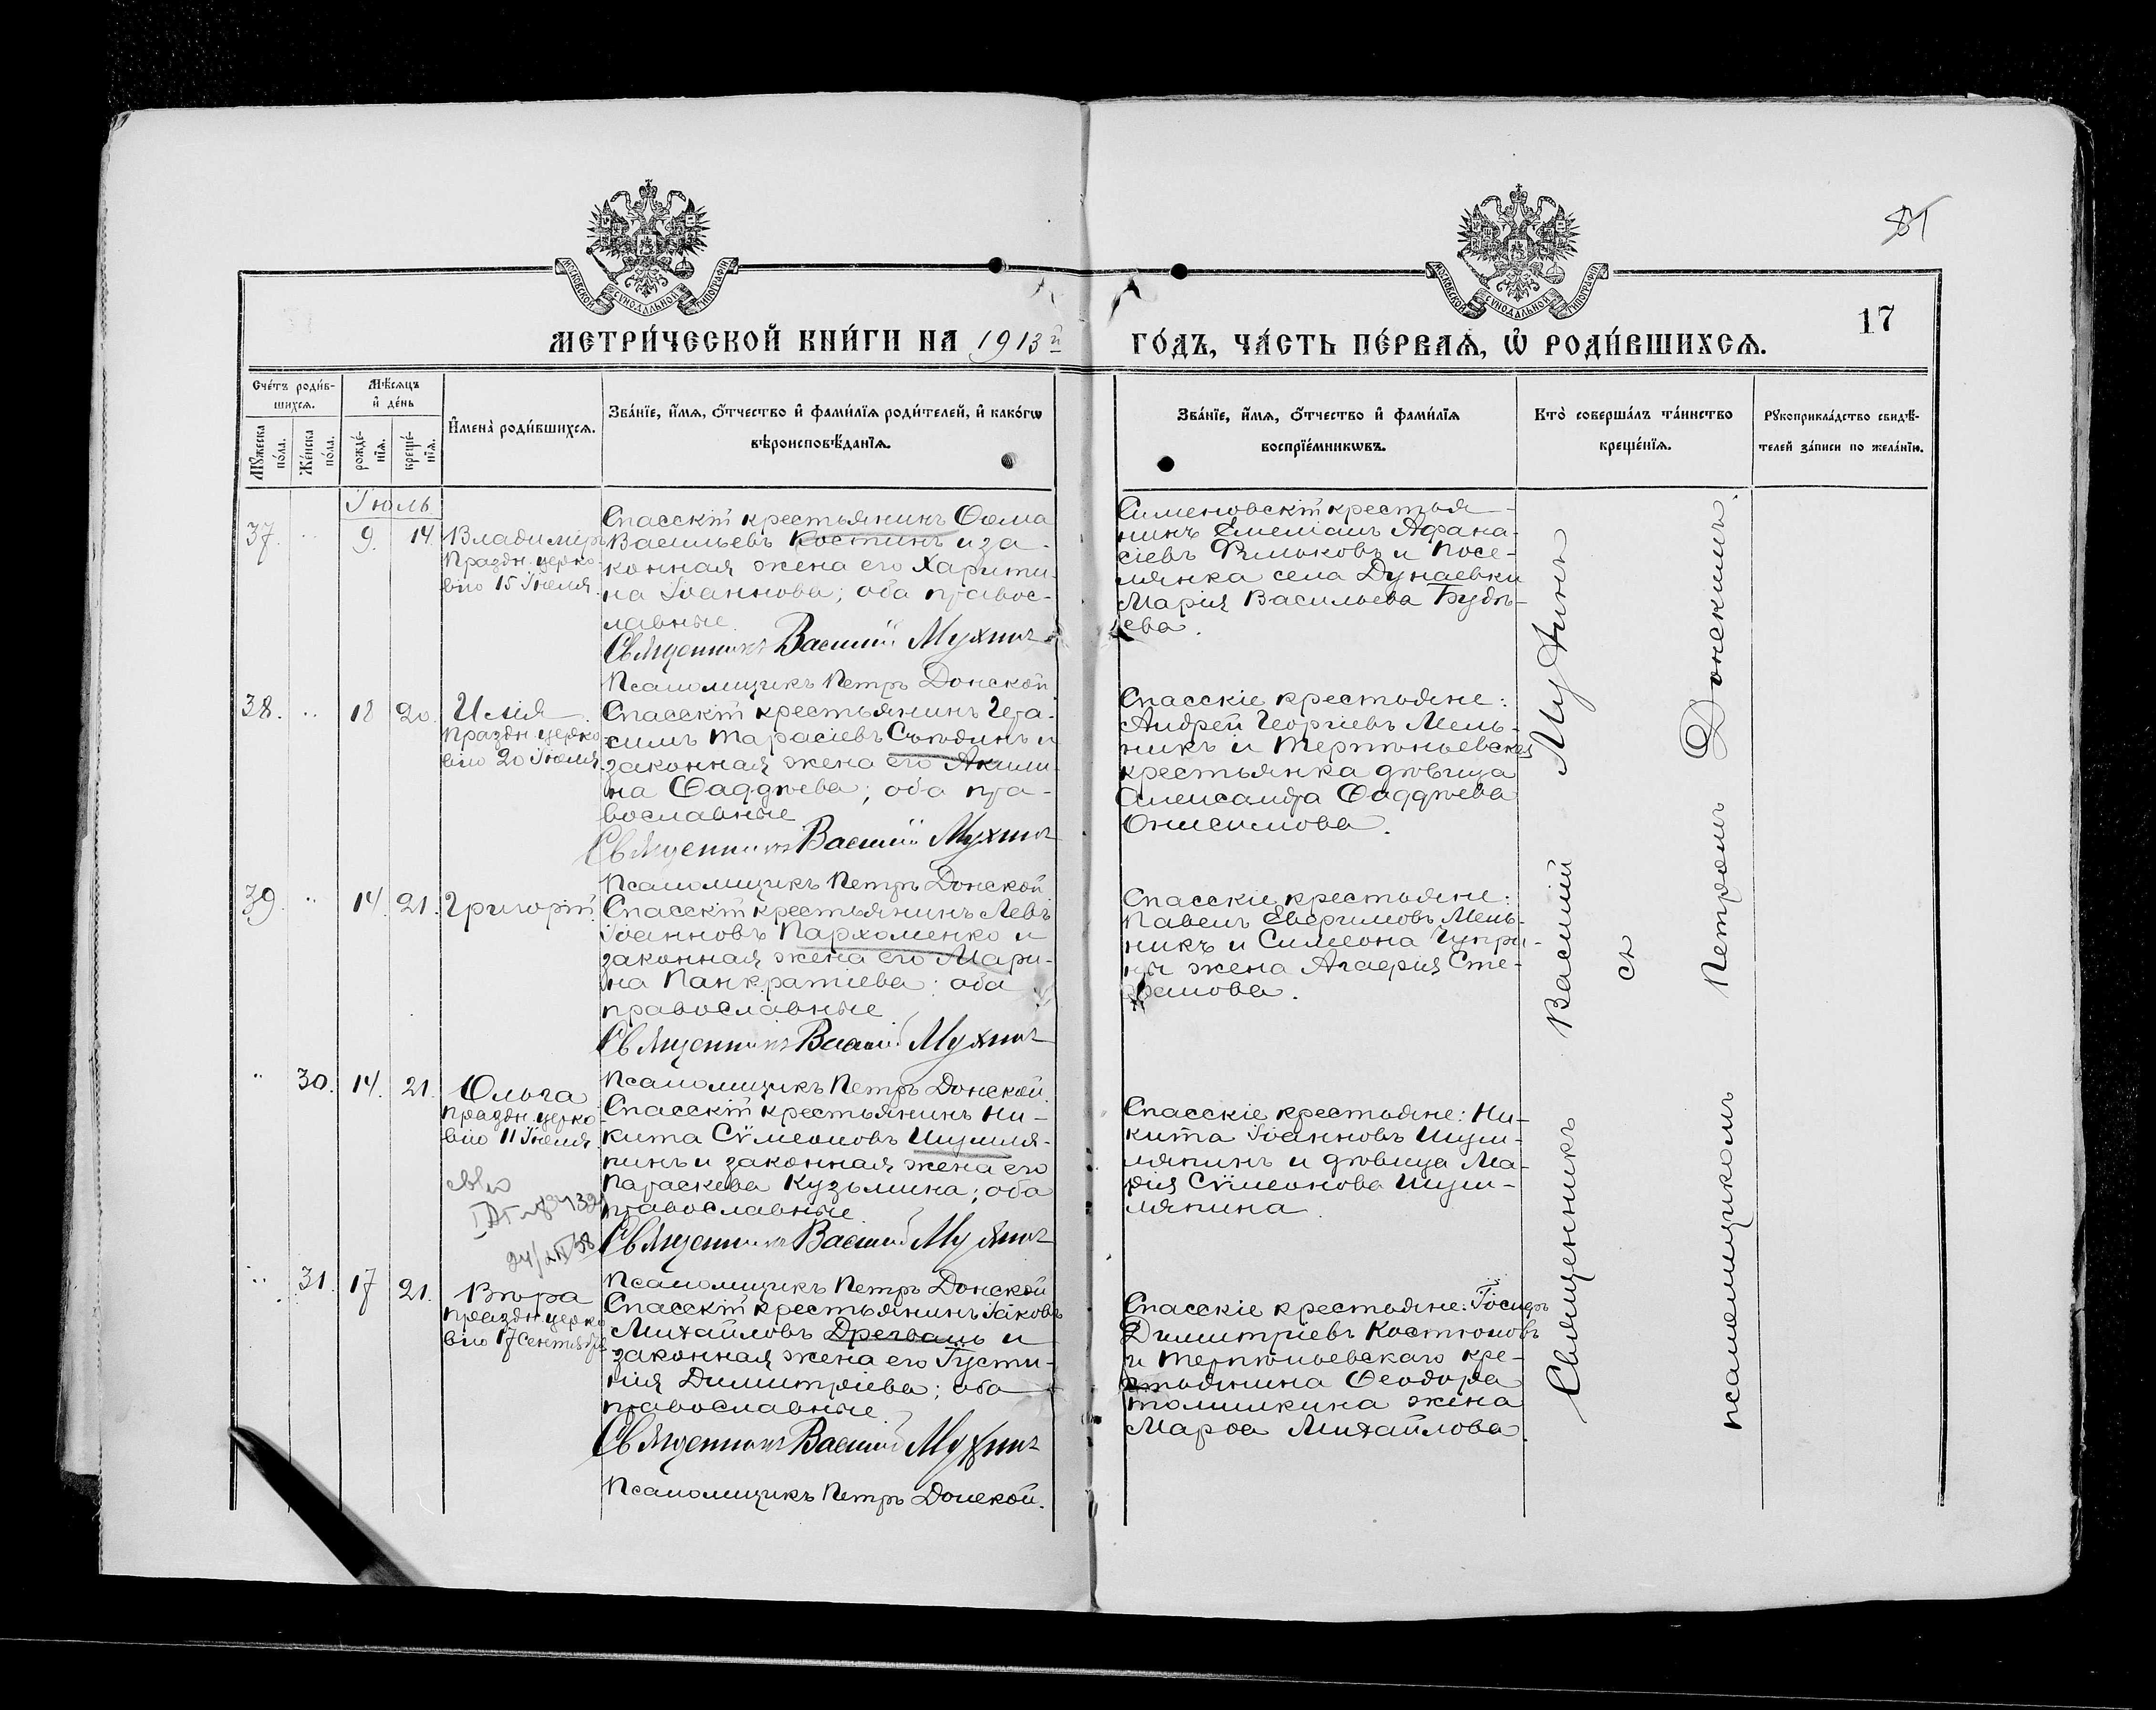 81
МОСКОВСКОЙ СѴНОДАЛЬНОЙ ТИПОГРАФІИ
МОСКОВСКОЙ СѴНОДАЛЬНОЙ ТИПОГРАФІИ
17
МЕТРИ́ЧЕСКОЙ КНИ́ГИ НА 1913й
ГО́ДЪ, ЧА́СТЬ ПЕ́РВАѦ, Ѡ҆ РОДИ́ВШИХСѦ.
Сче́тъ роди́в-
шихсѧ.
Мꙋ́жеска
по́ла.
Же́нска
по́ла.
Мѣ́сѧцъ
и҆ де́нь
рожде́-
нїѧ.
креще́-
нїѧ.
И҆мена̀ роди́вшихсѧ.
Зва́нїе, и҆́мѧ, ѻ҆́тчество и҆ фами́лїѧ роди́телей, и҆ како́гѡ
вѣроисповѣ́данїѧ.
Зва́нїе, и҆́мѧ, ѻ҆́тчество и҆ фами́лїѧ
воспрїе́мникѡвъ.
Кто̀ соверша́лъ та́инство
креще́нїѧ.
Рꙋкоприкла́дство свидѣ́-
телей за́писи по жела́нїю.
Іюль
37. " 9. 14. Владиміръ
Праздн. церко-
вію 15 Іюля.
Спасскій крестьянинъ Ѳома
Васильевъ Костинъ и за-
конная жена его Харити-
на Іоаннова; оба правос-
лавные.
Священникъ Василій Мухинъ
Псаломщикъ Петръ Донской
Сименовскій крестья-
нинъ Емеліанъ Афана-
сіевъ Фильковъ и посе-
лянка села Дунаевки
Марія Васильева Будъ-
ева.
38. " 18 20. Илія
Праздн. церко-
вію 20 Іюля.
Спасскій крестьянинъ Гера-
симъ Тарасіевъ Съединъ и
законная жена его Акили-
на Ѳаддѣева; оба пра-
вославные
Священникъ Василій Мухинъ
Псаломщикъ Петръ Донской
Спасскіе крестьяне:
Андрей Георгіевъ Мель-
никъ и Терпѣньевская
крестьянка дѣвица
Александра Ѳаддѣева
Онисимова.
39. " 14. 21. Григорій.
Спасскій крестьянинъ Левъ
Іоанновъ Пархоменко и
законная жена его Мари-
на Панкратіева; оба
православные
Священникъ Василій Мухинъ
Псаломщикъ Петръ Донской.
Спасскіе крестьяне:
Павелъ Евфимовъ Мель-
никъ и Симеона Чупри-
ны жена Агафія Сте-
фанова.
" 30. 14. 21. Ольга
Праздн. церко-
вію 11 Іюля.
Спасскій крестьянинъ Ни-
кита Сѵмеоновъ Шумля-
пинъ и законная жена его
Параскева Кузьмина; оба
православные.
Священникъ Василій Мухинъ
Псаломщикъ Петръ Донской
Спасскіе крестьяне: Ни-
кита Іоанновъ Шум-
ляпинъ и дѣвица Ма-
рія Сѵмеонова Шум-
ляпина.
" 31. 17 21. Вѣра
Праздн. церко-
вію 17 Сентября
Спасскій крестьянинъ Іаковъ
Михайловъ Древаль и
законная жена его Іусти-
нія Димитріева; оба
православные.
Священникъ Василій Мухинъ
Псаломщикъ Петръ Донской.
Спасскіе крестьяне: Іосифъ
Димитріевъ Костюковъ
и Терпѣньевскаго кре-
стьянина Ѳеодора
Толмикина жена
Марѳа Михайлова.
Священникъ Василій Мухинъ
съ
псаломщикомъ Петромъ Донскимъ.